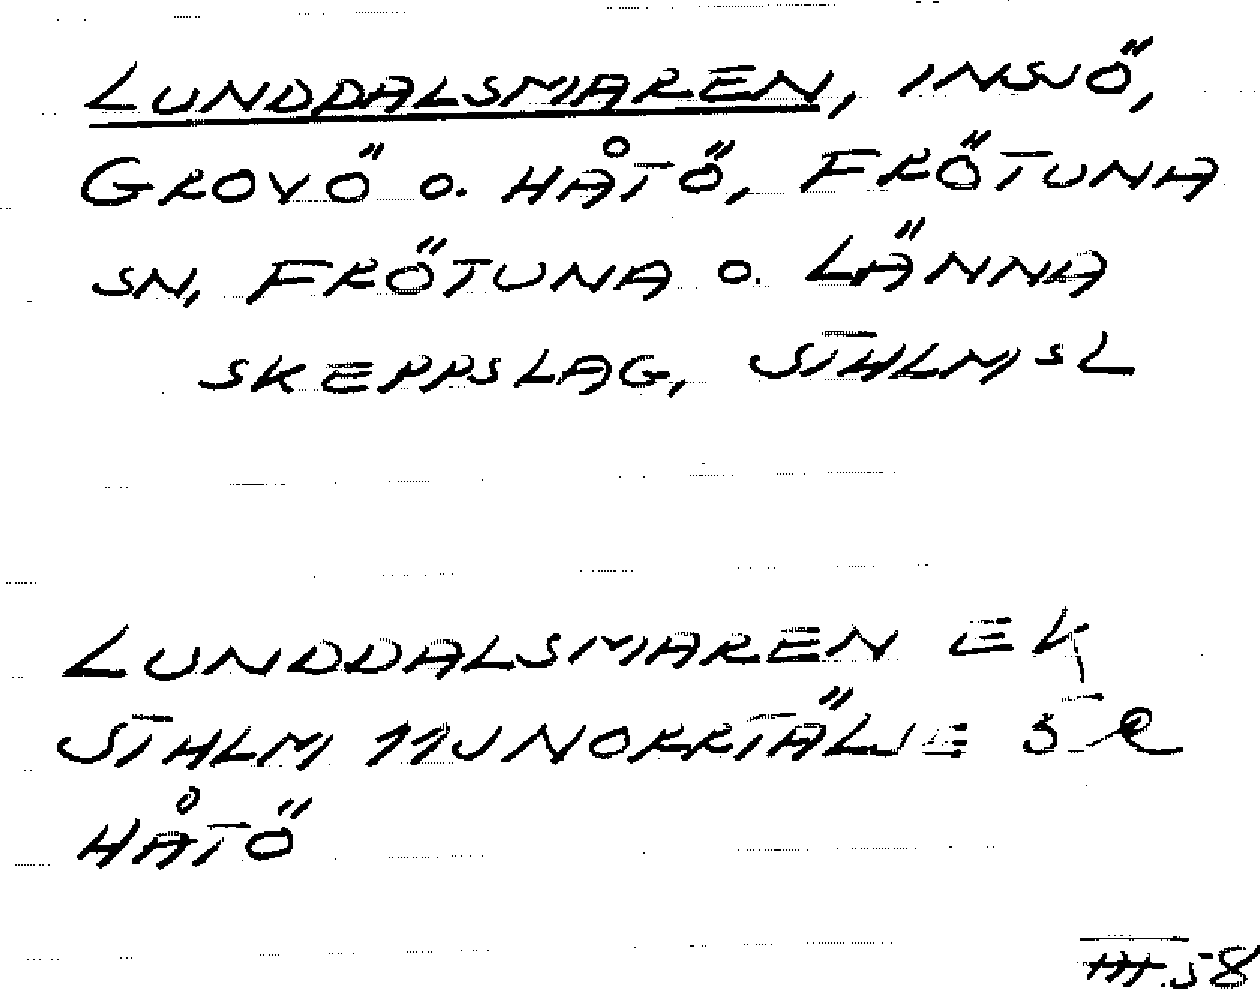 LUNDDALSMAREN, INSJÖ,
GROVÖ O. HÅTÖ, FRÖTUNA
SN, FRÖTUNA O. LÄNNA
SKEPPSLAG, STHLMSL
LUNDDALSMAREN EK
STHLM 11J NORRTÄLJE 5 R
HÅTÖ
III.58